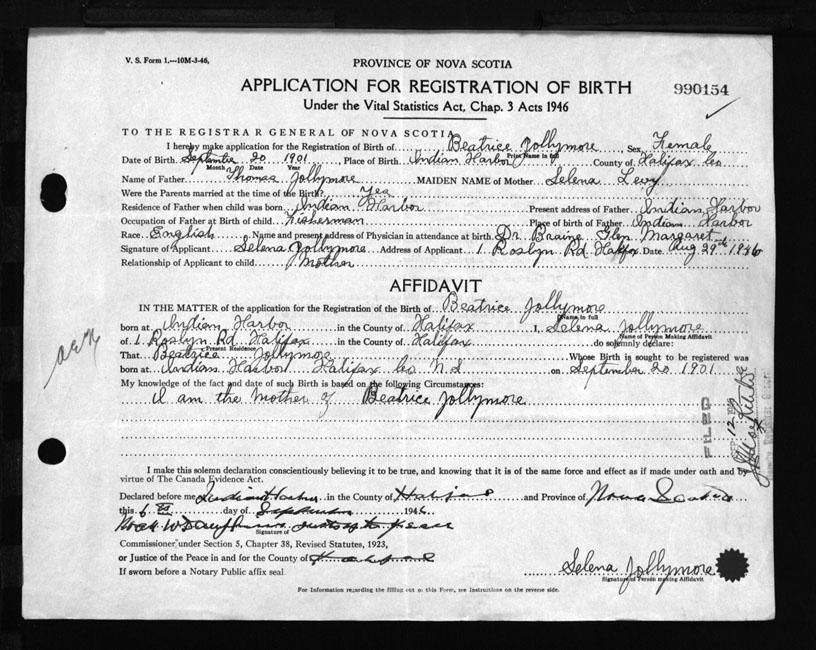 V. S. Form 1.—10M-3-46,
PROVINCE OF NOVA SCOTIA
APPLICATION FOR REGISTRATION OF BIRTH
990154
Under the Vital Statistics Act, Chap. 3 Acts 1946
TO THE REGISTRAR GENERAL OF NOVA SCOTIA
I hereby make application for the Registration of Birth of Beatrice Jollymore Sex Female
Print Name in full
Date of Birth September 20 1901 Place of Birth Indian Harbor County of Halifax Co
Month Date Year
Name of Father Thomas Jollymore MAIDEN NAME of Mother Selena Levy
Were the Parents married at the time of the Birth? Yea
Residence of Father when child was born Indian Harbor Present address of Father Indian Harbor
Occupation of Father at Birth of child Fisherman Place of birth of Father Indian Harbor
Race English Name and present address of Physician in attendance at birth Dr Braine Glen Margaret
Signature of Applicant Selena Jollymore Address of Applicant 1 Roslyn Rd Halifax Date Aug 29th 1946
Relationship of Applicant to child Mother
AFFIDAVIT
IN THE MATTER of the application for the Registration of the Birth of Beatrice Jollymore
Name in full
born at Indian Harbor in the County of Halifax I, Selena Jollymore
Name of Person Making Affidavit
of 1 Roslyn Rd Halifax in the County of Halifax do solemnly declare:
Present Residence
That Beatrice Jollymore Whose Birth is sought to be registered was
born at Indian Harbor Halifax Co N.S on September 20 1901
My knowledge of the fact and date of such Birth is based on the following Circumstances:
I am the Mother of Beatrice Jollymore
FILED
12
I make this solemn declaration conscientiously believing it to be true, and knowing that it is of the same force and effect as if made under oath and by
virtue of The Canada Evidence Act.
Declared before me Indian Harbor in the County of Halifax and Province of Nova Scotia
this 6 day of September 1946
Signature of
Commissioner, under Section 5, Chapter 38, Revised Statutes, 1923,
or Justice of the Peace in and for the County of Halifax
If sworn before a Notary Public affix seal.
Selena Jollymore
Signature of Person making Affidavit
For Information regarding the filling out of this Form, see Instructions on the reverse side.